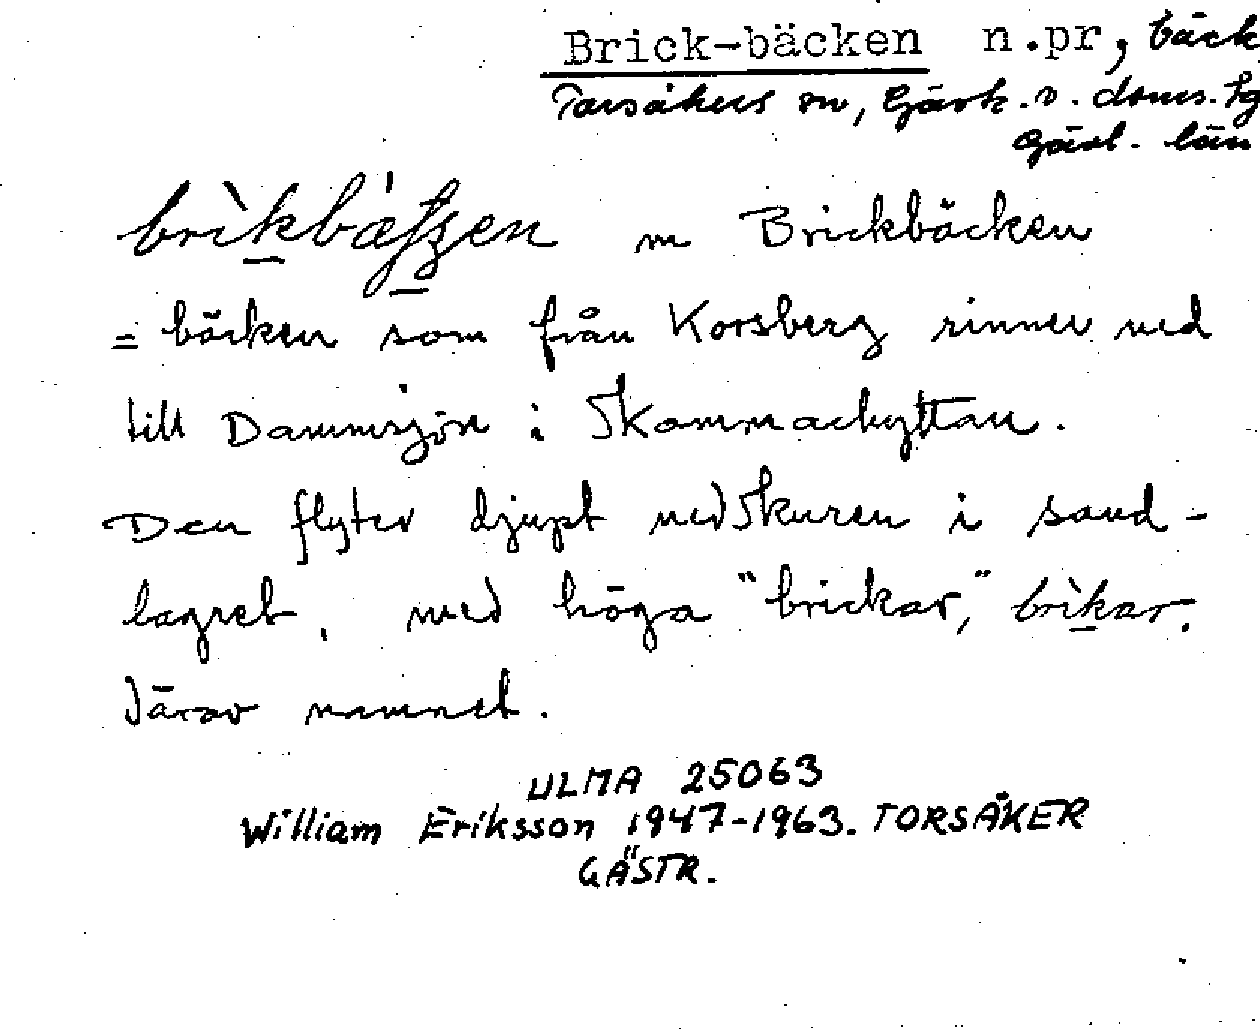 Brick-bäcken n.pr, bäck
Torsåkers sn, Gästr. v. doms.
Gävl. län
brìkbæ̀tʃen m Brickbäcken
= bäcken som från Korsberg rinner ned
till Dammsjön i Skommarhyttan.
Den flyter djupt nedskuren i sand-
lagret, med höga "brickar," brìkar.
Därav namnet.
ULMA 25063
William Eriksson 1947-1963. TORSÅKER
GÄSTR.